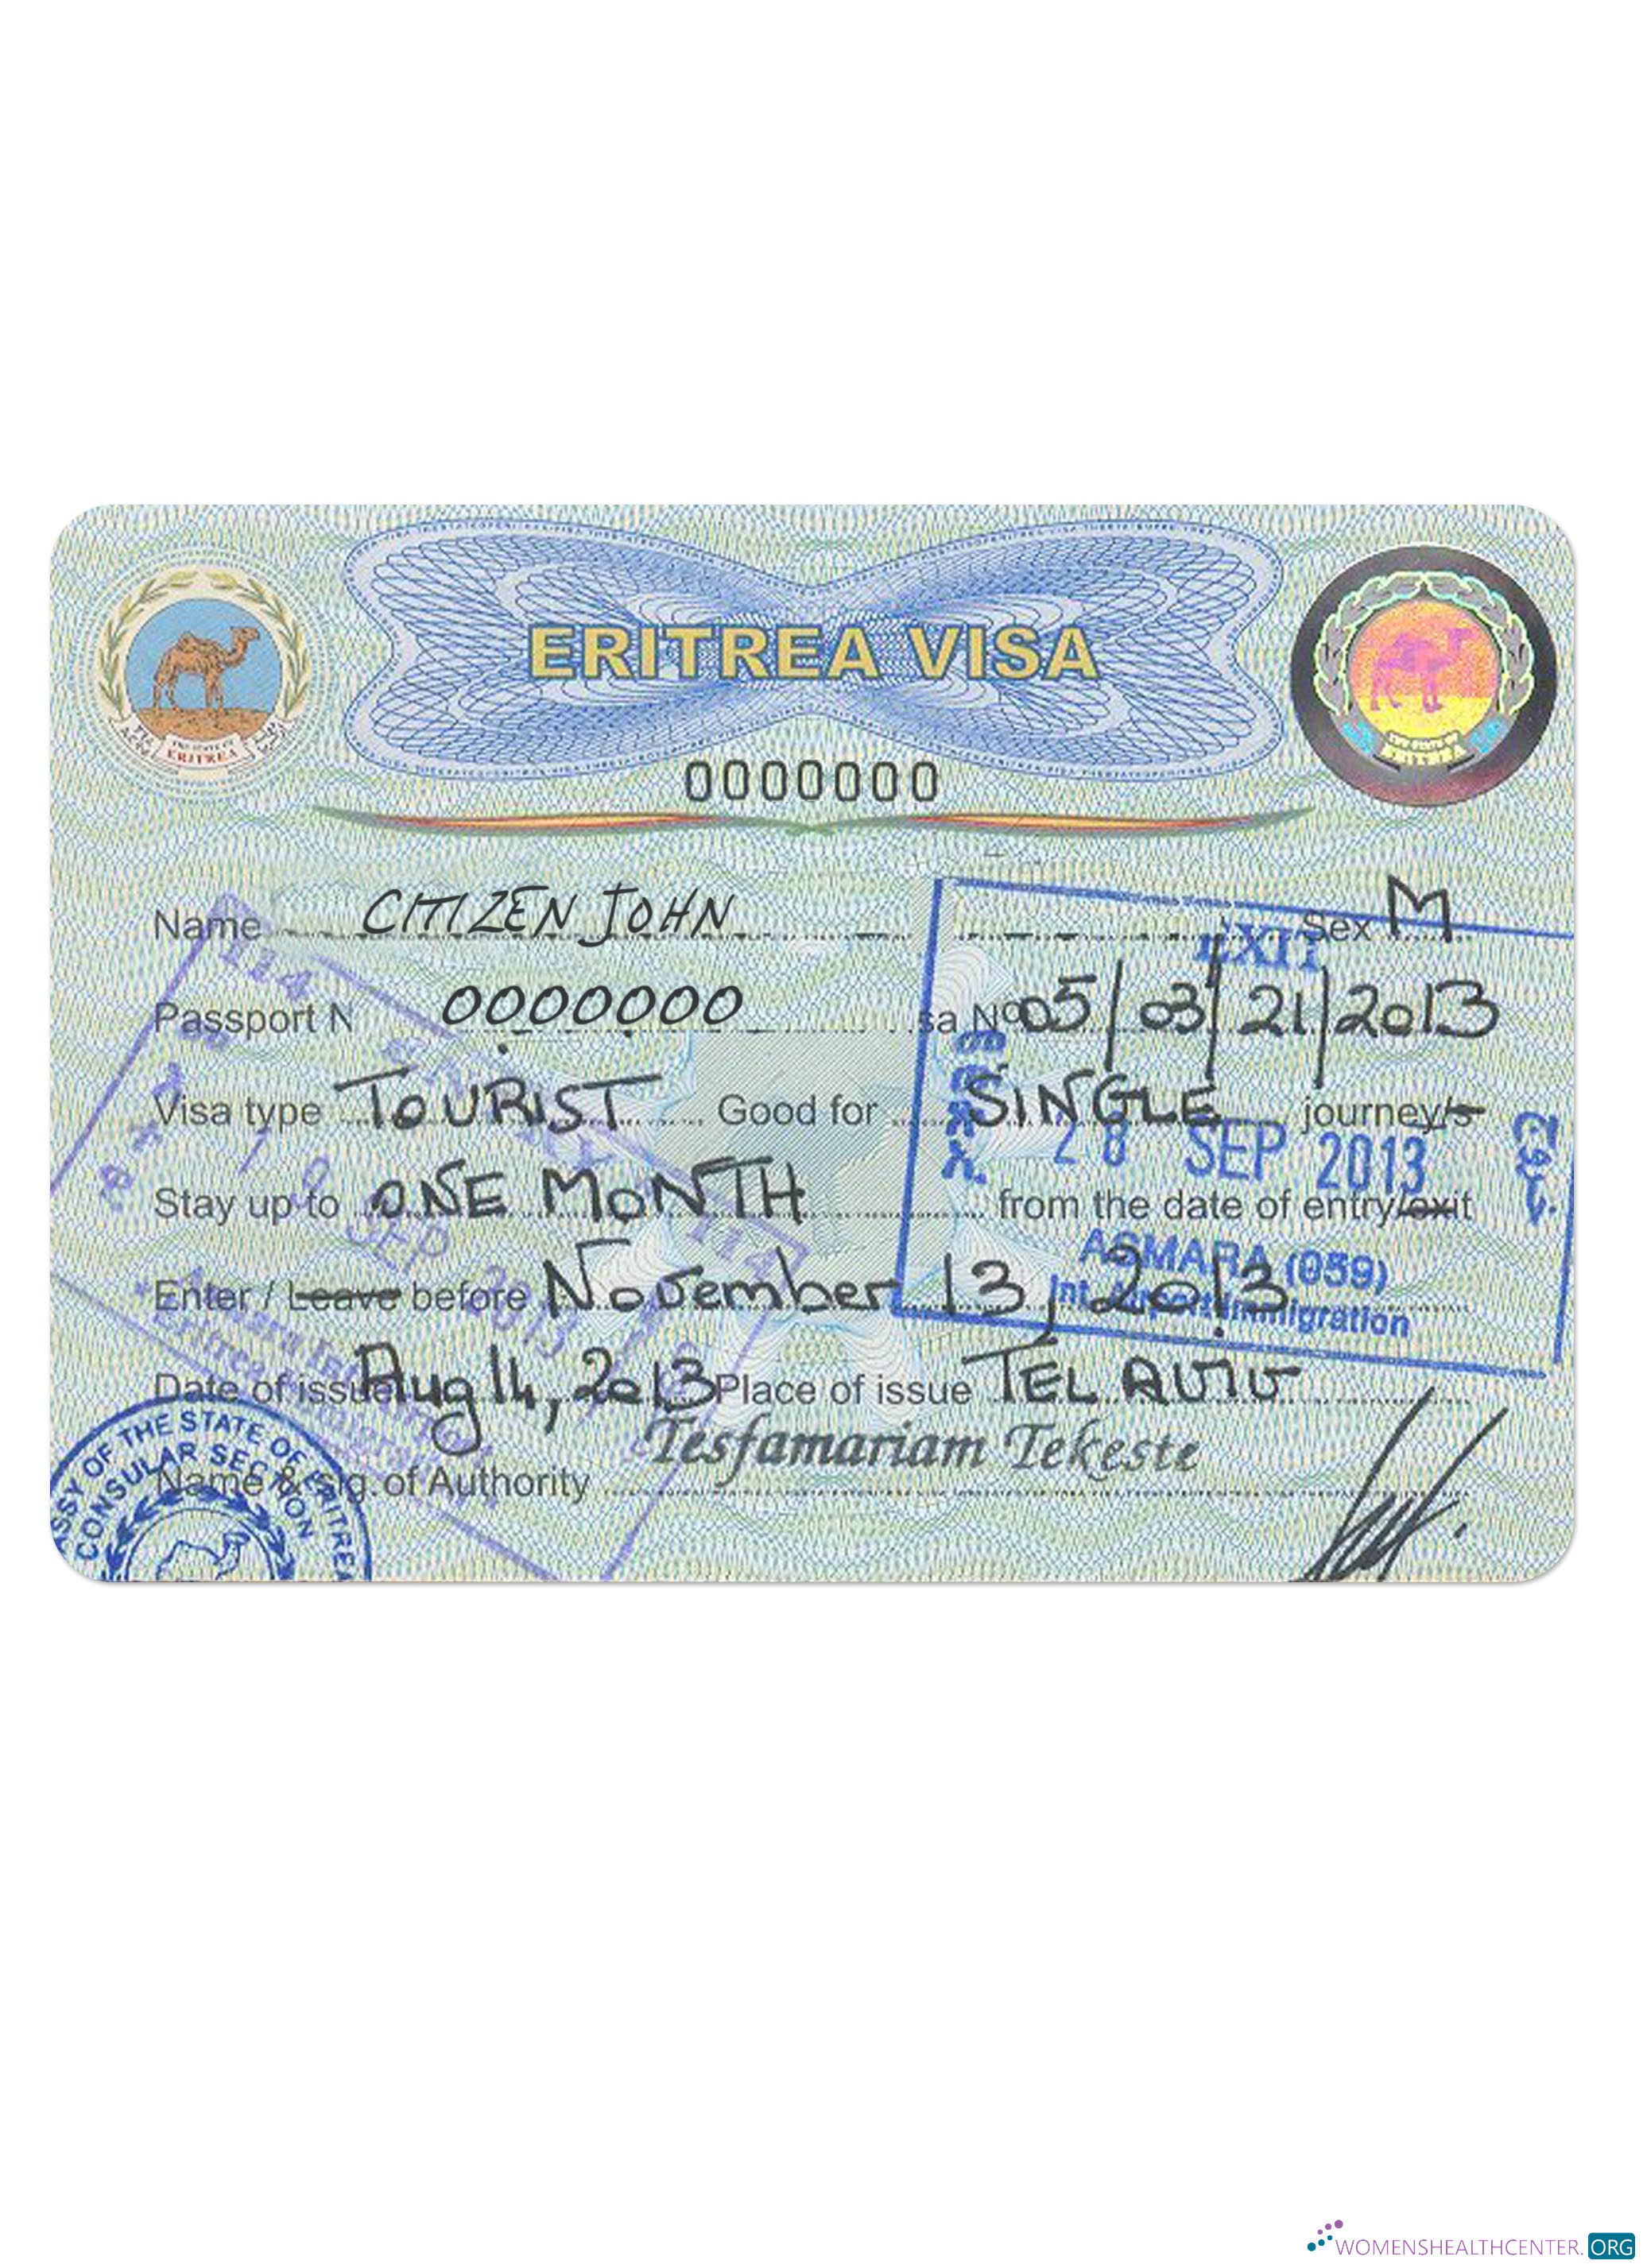 THE STATE OF
ERITREA
ERITREA VISA
THE STATE OF
ERITREA
0000000
Name CITIZEN JOHN Sex M
EXIT
114
Passport N 0000000 sa Nº 05/03/21/2013
Visa type TOURIST Good for SINGLE journey/s
28 SEP 2013
Stay up to ONE MONTH from the date of entry/exit
SEP
2013
114
ASMARA (059)
Enter / Leave before November 13, 2013
Int. Airport Immigration
Date of issue Aug 14, 2013 Place of issue TEL AVIV
Tesfamariam Tekeste
Name & sig. of Authority
ASSY OF THE STATE OF ERITREA
CONSULAR SECTION
WOMENSHEALTHCENTER.ORG